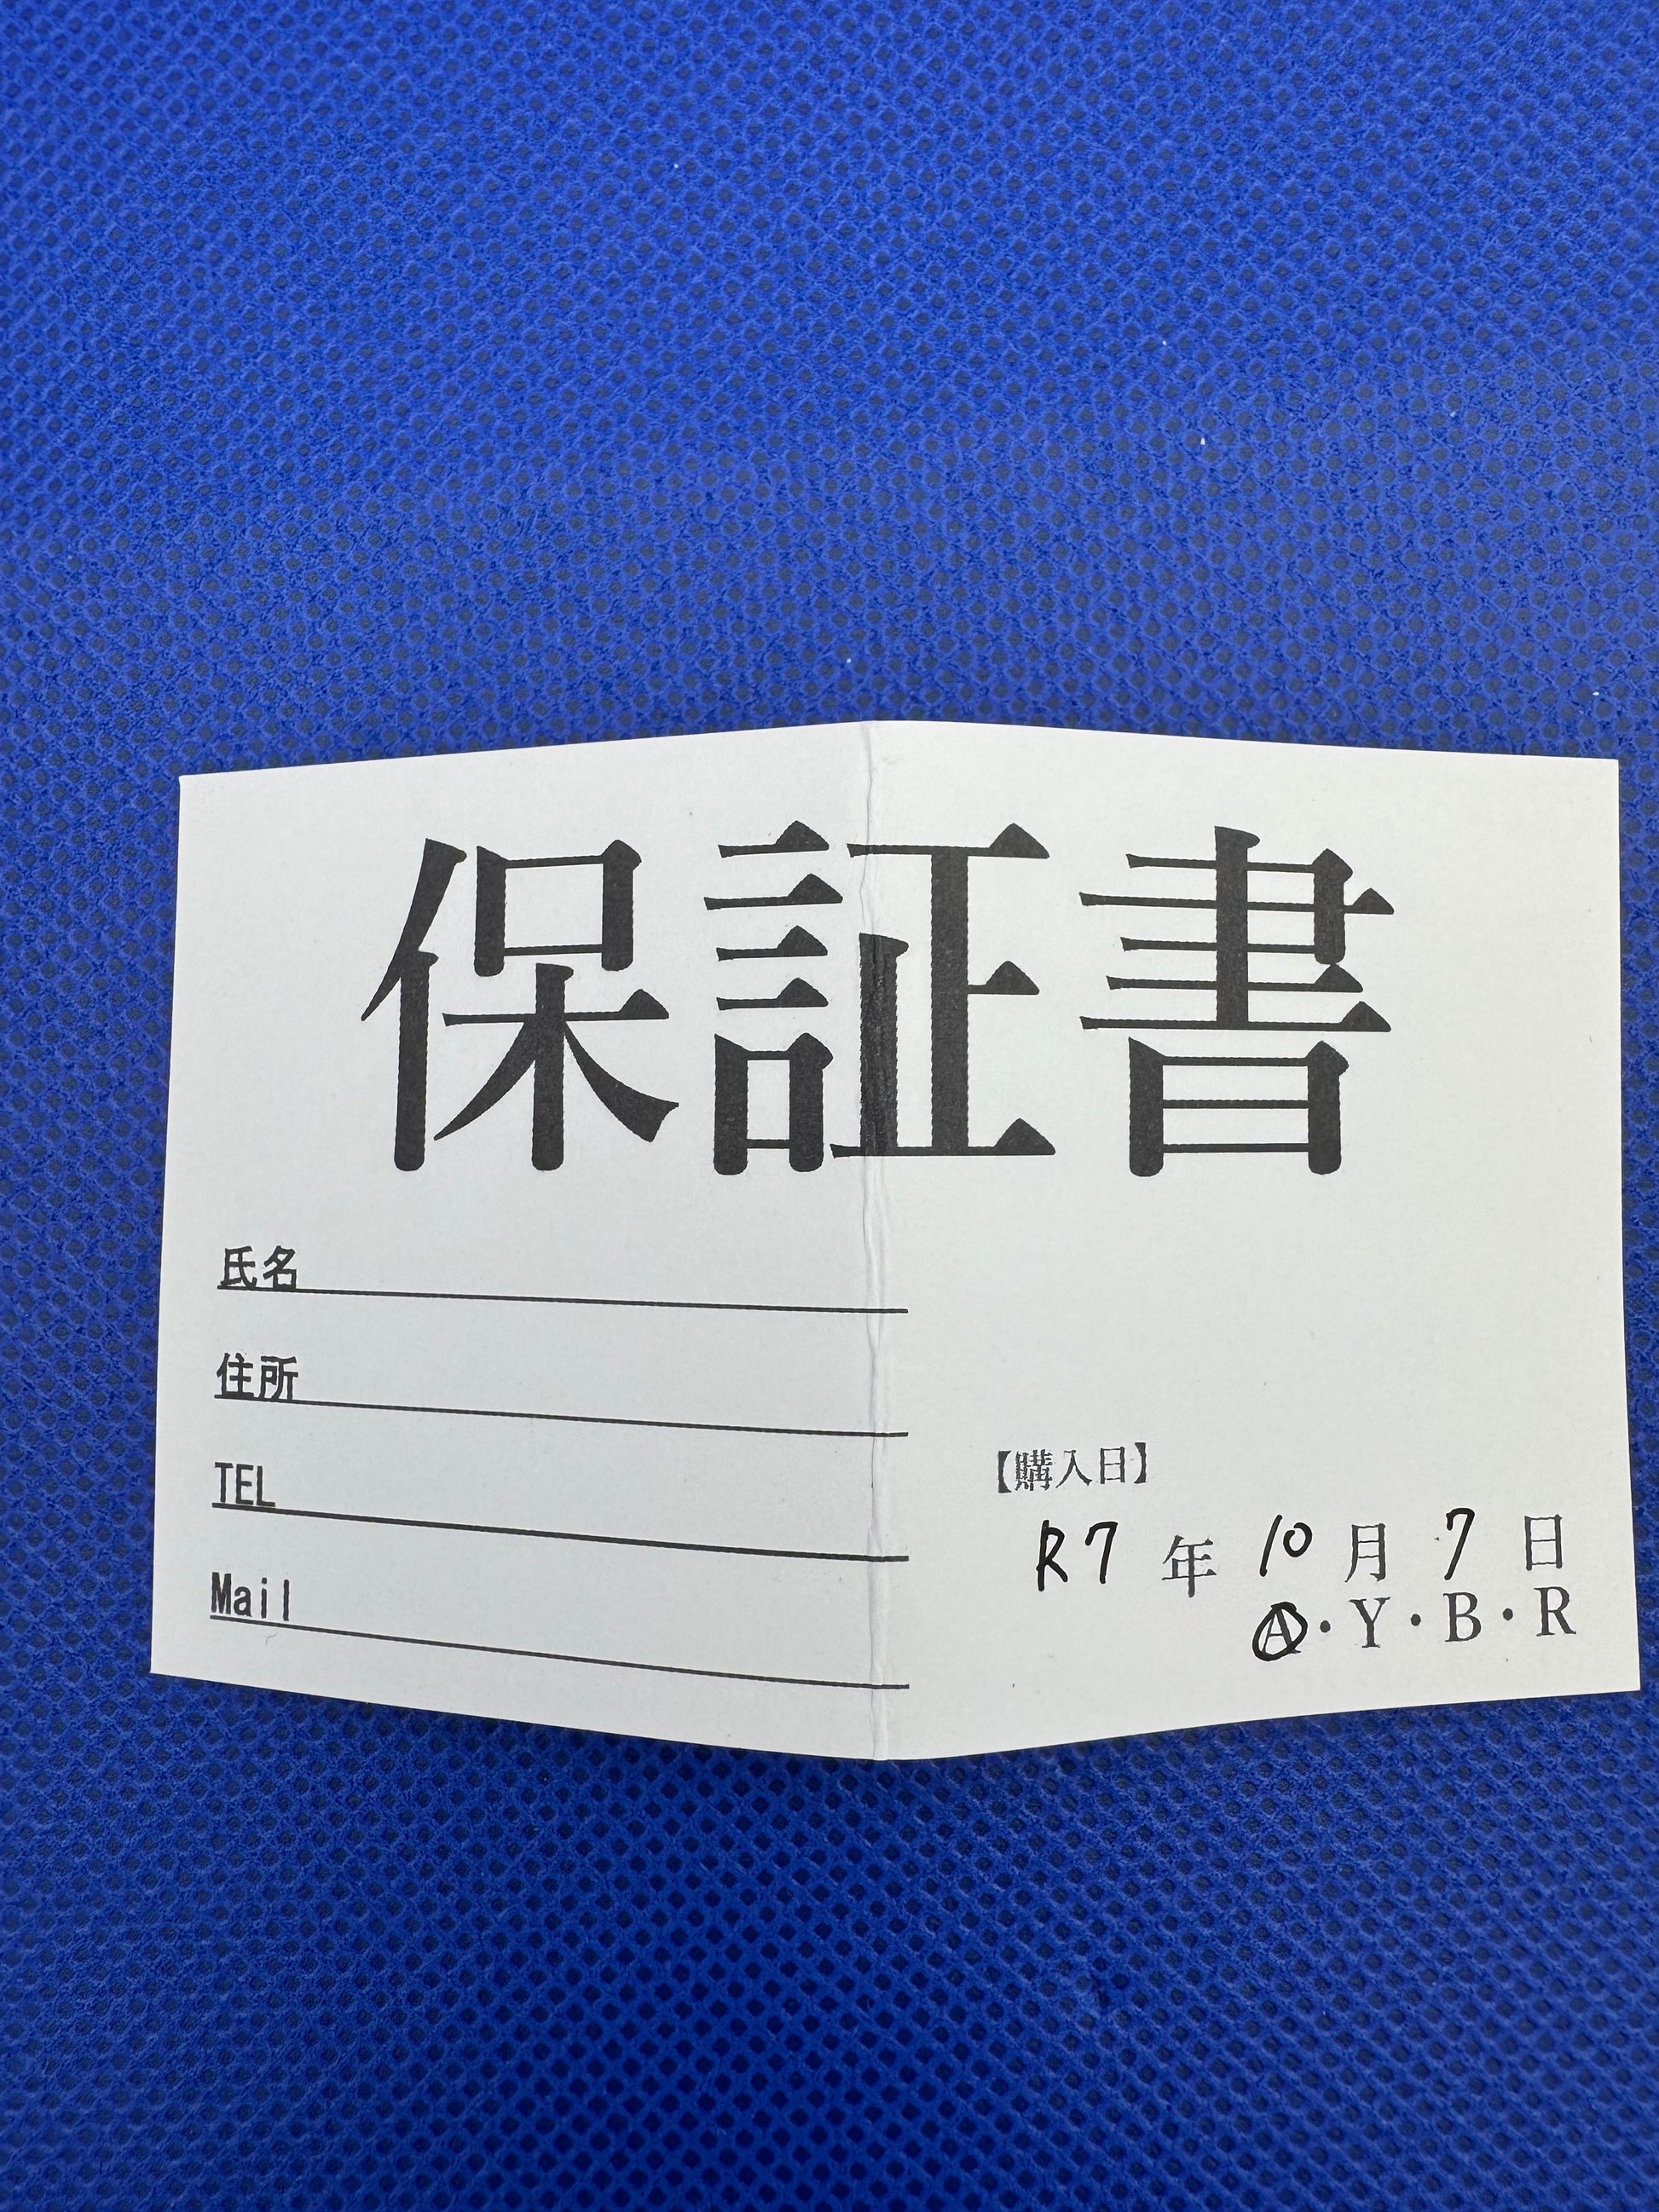 保証書
氏名
住所
TEL
Mail
【購入日】
R7年10月7日
A・Y・B・R